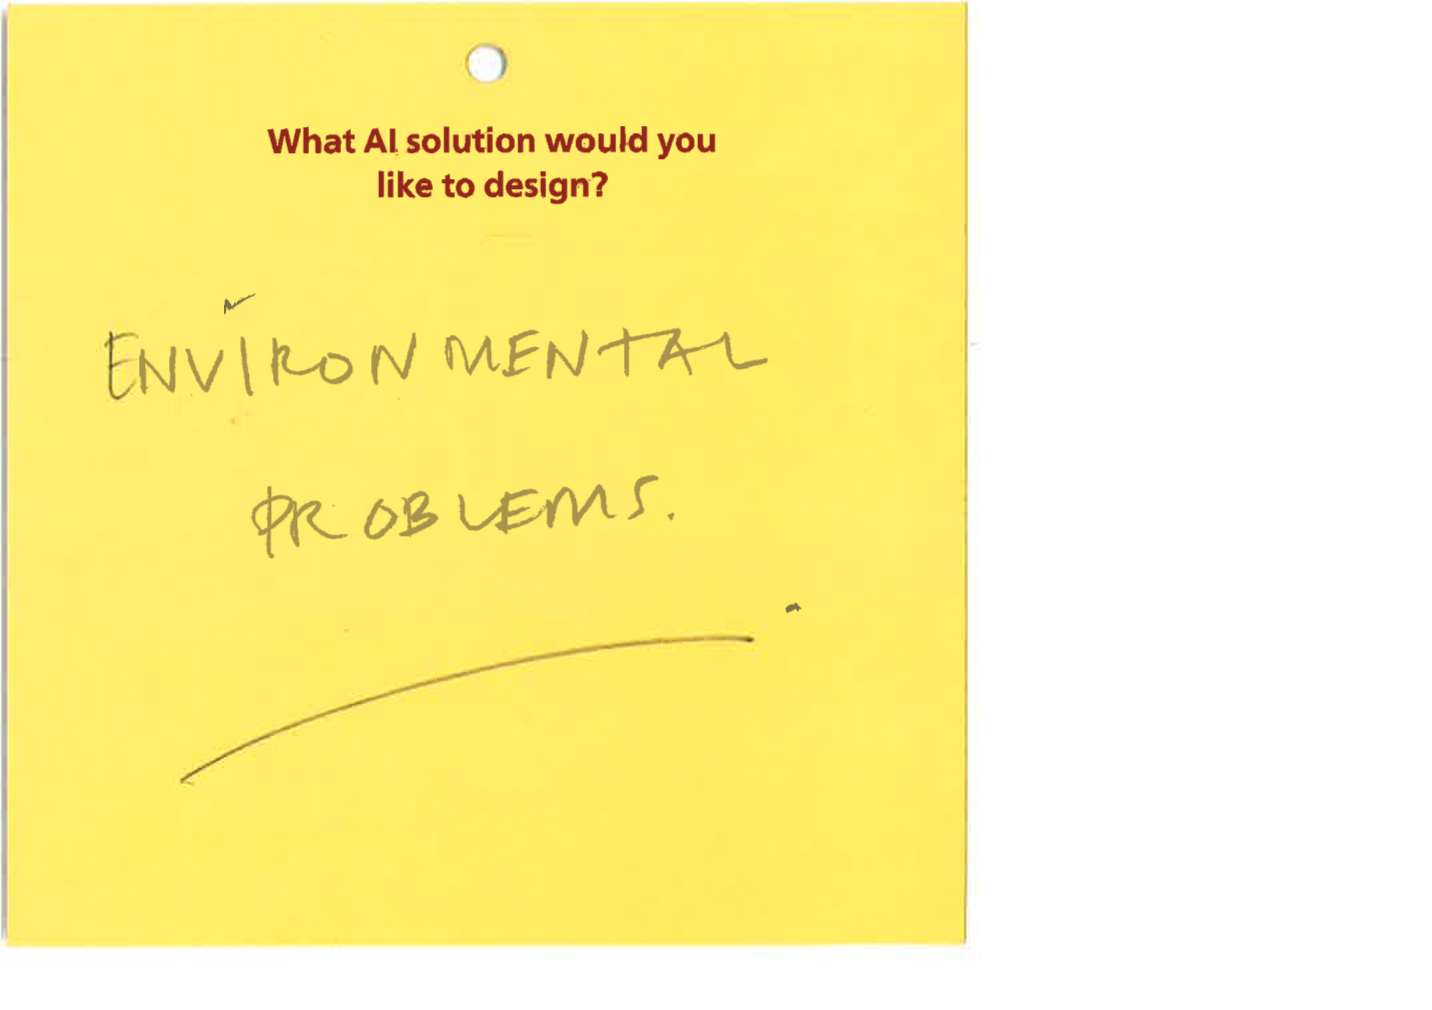 What AI solution would you
like to design?
ENVIRONMENTAL
PROBLEMS.